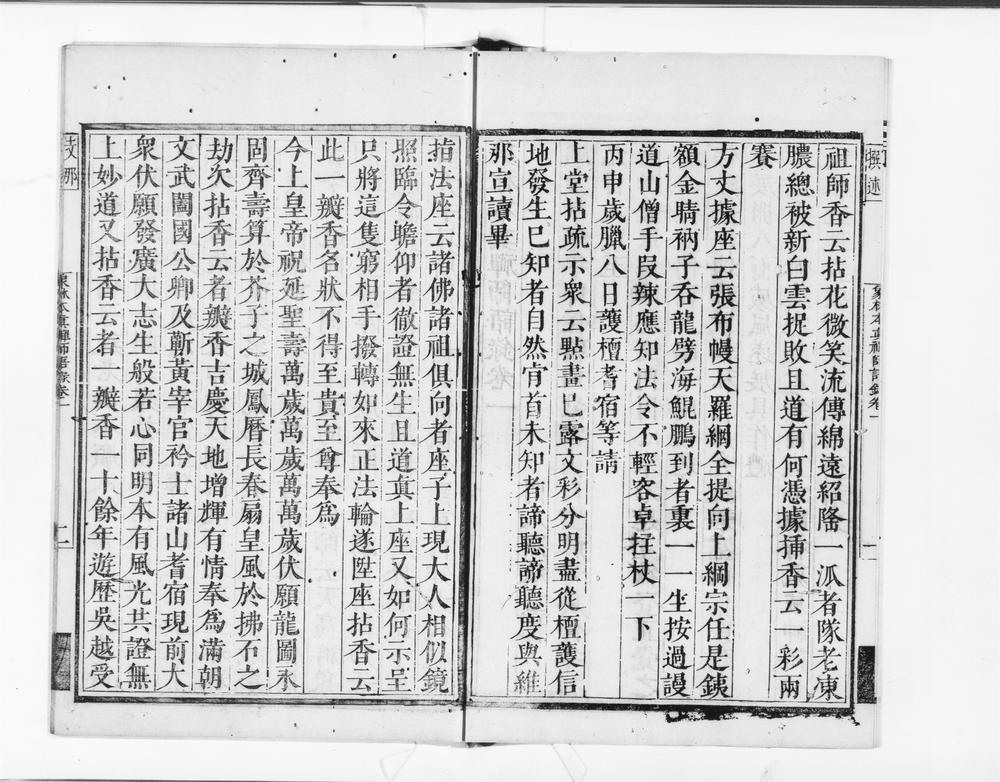 撰述
象林本真禪師語錄卷一
一
祖師香云拈花微笑流傳綿遠紹隆一派者隊老凍
膿總被新白雲捉敗且道有何憑據揷香云一彩兩
賽
方丈據座云張布幔天羅網全提向上綱宗任是鐵
額金睛衲子吞龍劈海鯤鵬到者裏一一坐按過謾
道山僧手叚辣應知法令不輕客卓拄杖一下
丙申歲臘八日護檀耆宿等請
上堂拈疏示衆云㸃畫已露文彩分明盡從檀護信
地發生已知者自然肯首未知者諦聽諦聽度與維
那宣讀畢
指法座云諸佛諸祖俱向者座子上現大人相似鏡
照臨令瞻仰者徹證無生且道真上座又如何示呈
只將這隻窮相手撥轉如來正法輪遂陞座拈香云
此一瓣香名狀不得至貴至尊奉爲
今上皇帝祝延聖壽萬歲萬歲萬萬歲伏願龍圖永
固齊壽算於芥子之城鳳曆長春扇皇風於拂石之
劫次拈香云者瓣香吉慶天地增輝有情奉爲滿朝
文武閫國公卿及蘄黃宰官衿士諸山耆宿現前大
衆伏願發廣大志生般若心同明本有風光共證無
上妙道又拈香云者一瓣香一十餘年遊歷吳越受
支那
象林本真禪師語錄卷一
二